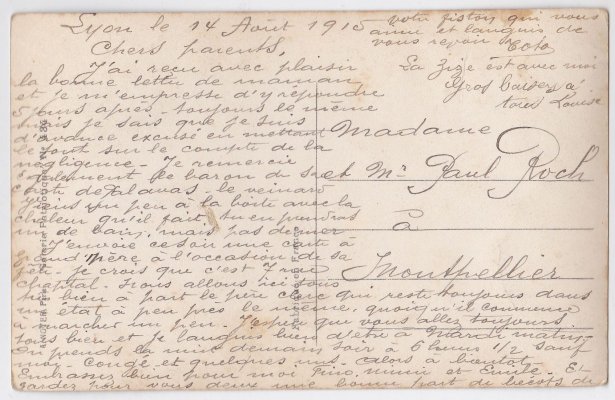 Lyon le 14 Août 1915
Chers parents,
J'ai reçu avec plaisir
la bonne lettre de maman
et je m'empresse d'y répondre
5 jours après - toujours le même
mais je sais que je suis
d'avance excusé en mettant
le tout sur le compte de la
négligence - Je remercie
également le baron de sa
carte de Palavas - le veinard
Tiens un peu à la boîte avec la
chaleur qu'il fait, tu en prendras
un de bain, mais pas dernier
J'envoie ce soir une carte à
grand Mère à l'occasion de sa
fête - je crois que c'est 7 rue
chaptal - Nous allons ici tous
très bien à part le père clerc qui reste toujours dans
un état à peu près le même, quoiqu'il commence
à marcher un peu - J'espère que vous allez toujours
tous bien et je languis bien d'être à Mardi matin
On prends la nuit demain soir à 6 heures 1/2 sauf
moi - Congé et quelques uns - alors à bientôt
Embrassez bien pour moi Fino, Mimi et Emile - Et
gardez pour vous deux une bonne part de bécots de
votre fiston qui vous
aime et languis de
vous revoir Toto
La Zize est avec moi
Gros baisers à
tous Louise
Madame
et Mr Paul Roch
à
Montpellier